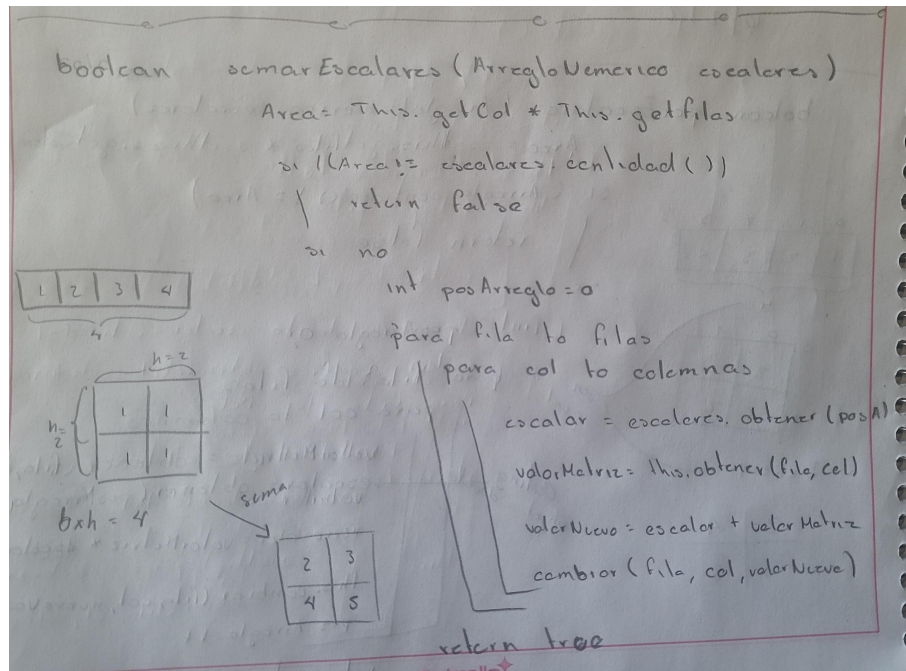 boolean sumarEscalares (ArregloNumerico escalares)
Area = This.getCol * This.getfilas
si ((Area != escalares.cantidad())
return false
si no
int posArreglo = 0
para fila to filas
para col to columnas
escalar = escalares.obtener(posA)
valorMatriz = This.obtener(fila, col)
valorNuevo = escalar + valorMatriz
cambiar (fila, col, valorNuevo)
return true
1 2 3 4
4
h = 2
h = 2
1 1
1 1
b x h = 4
suma
2 3
4 5